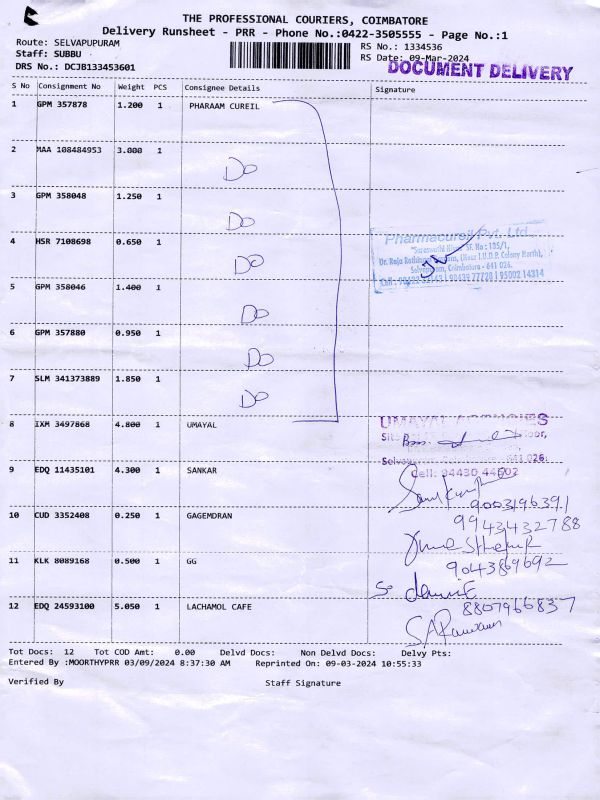 THE PROFESSIONAL COURIERS, COIMBATORE
Delivery Runsheet - PRR - Phone No.:0422-3505555 - Page No.:1
Route: SELVAPUPURAM
Staff: SUBBU
DRS No.: DCJB133453601
RS No.: 1334536
RS Date: 09-Mar-2024
DOCUMENT DELIVERY
S No Consignment No Weight PCS Consignee Details Signature
1 GPM 357878 1.200 1 PHARAAM CUREIL
2 MAA 108484953 3.000 1 Do
3 GPM 358048 1.250 1 Do
4 HSR 7108698 0.650 1 Do
Pharmacureil Pvt. Ltd.
5 GPM 358046 1.400 1 Do
Selvapuram, Coimbatore - 641 026.
6 GPM 357880 0.950 1 Do
7 SLM 341373889 1.850 1 Do
8 IXM 3497868 4.800 1 UMAYAL
UMAYAL AGENCIES
Cell: 94430 44602
9 EDQ 11435101 4.300 1 SANKAR
9003196391
10 CUD 3352408 0.250 1 GAGEMDRAN
9943432788
11 KLK 8089168 0.500 1 GG
9043869692
12 EDQ 24593100 5.050 1 LACHAMOL CAFE
8807966837
Tot Docs: 12 Tot COD Amt: 0.00 Delvd Docs: Non Delvd Docs: Delvy Pts:
Entered By :MOORTHYPRR 03/09/2024 8:37:30 AM Reprinted On: 09-03-2024 10:55:33
Verified By Staff Signature